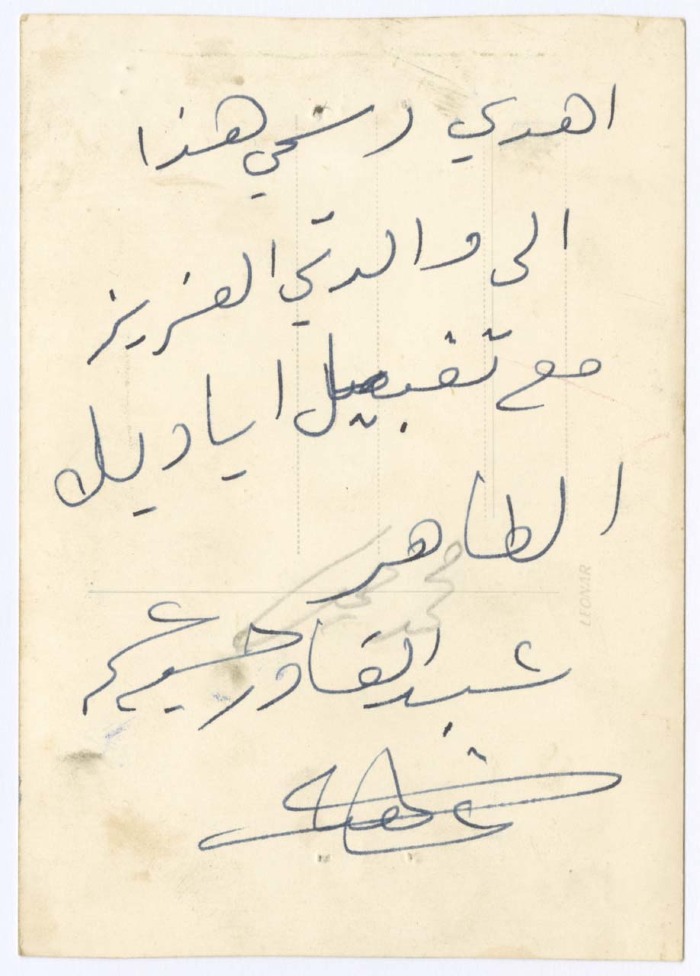 اهدي رسمي هذا
الى والدتي العزيز
مع تقبيل اياديك
الطاهر
عبد القادر
LEONAR